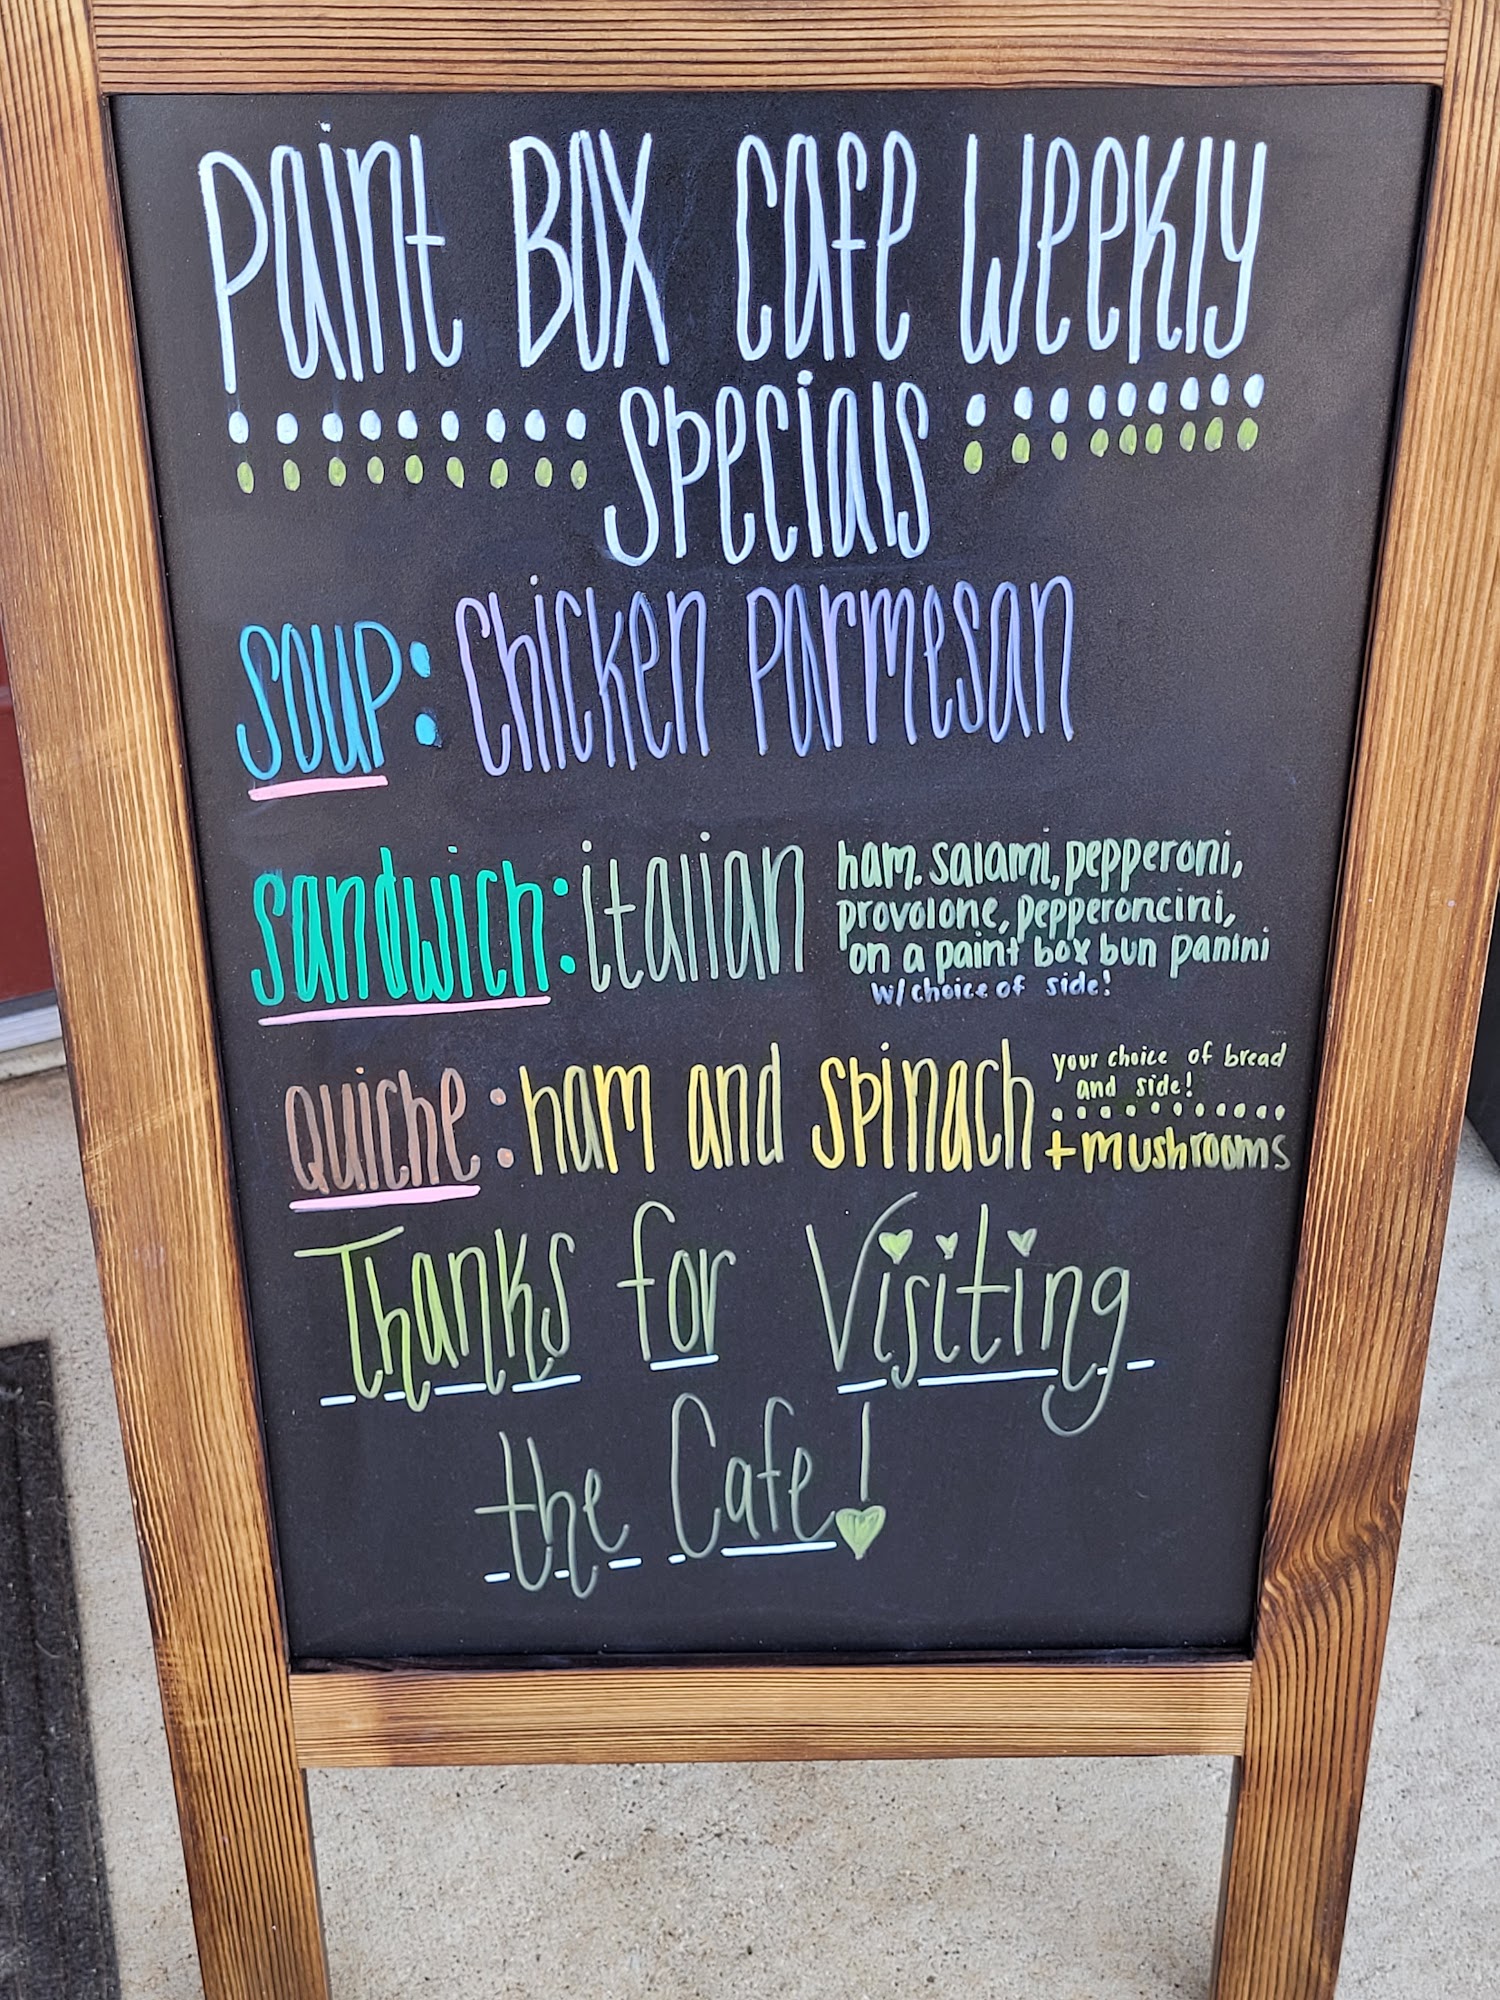 Paint Box Cafe Weekly
Specials
Soup: Chicken Parmesan
Sandwich: Italian
ham. salami, pepperoni,
provolone, pepperoncini,
on a paint box bun panini
w/ choice of side!
Quiche: ham and spinach
your choice of bread
and side!
+ mushrooms
Thanks for Visiting
the Cafe!